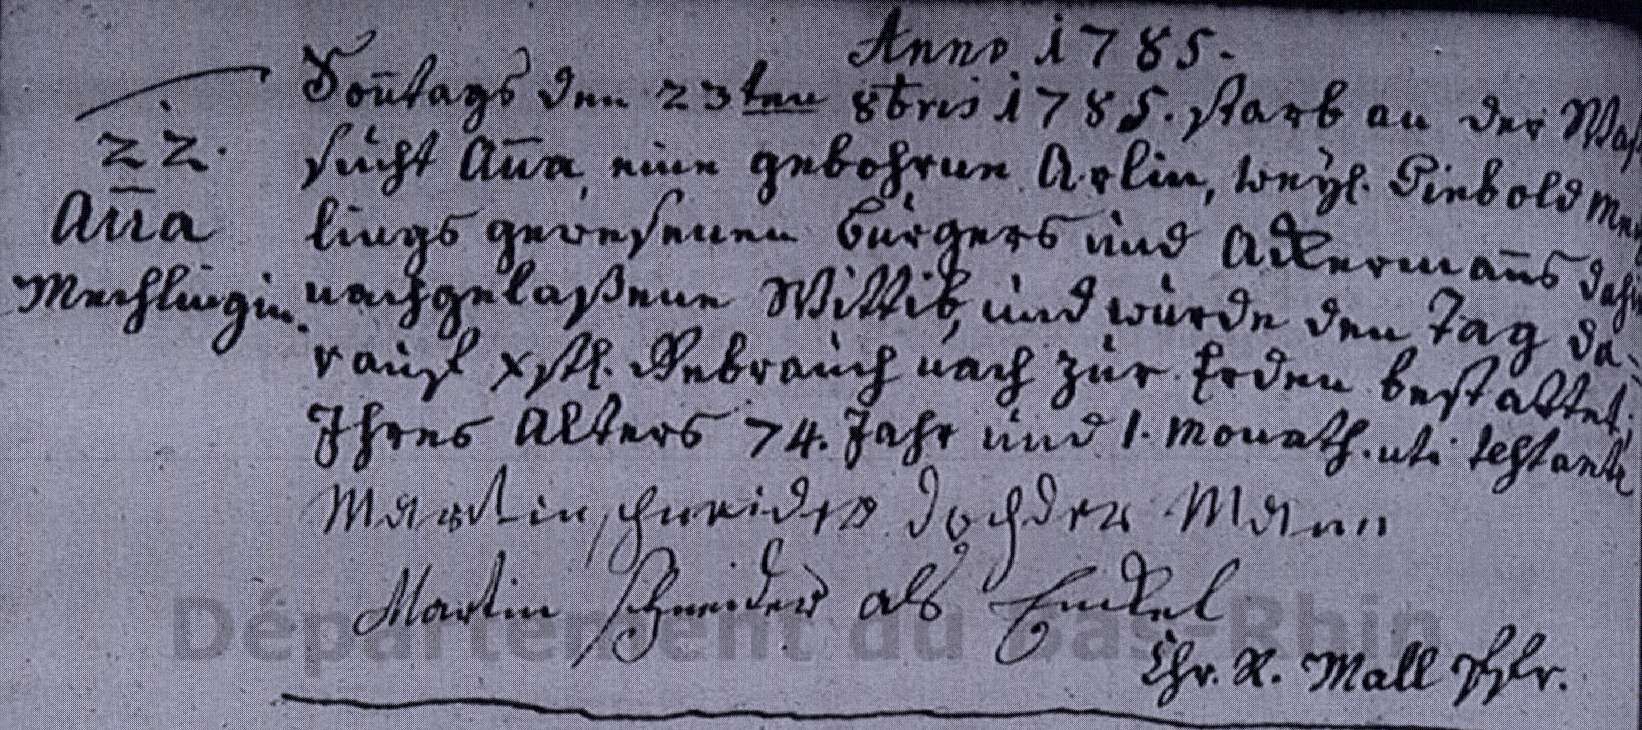 Anno 1785.
Son̄tags den 23ten 8bris 1785. starb an der Was
22.
sücht An̄a, eine gebohrne Arlin, weyl. Diebold Mech
An̄a
lings gewesenen Bürgers und Ackerman̄s dahier
Mechlingin.
nachgelaßene Wittib, und wurde den Tag da-
rauf xstl. Gebrauch nach zur Erden bestattet,
Ihres Alters 74. Jahr und 1. Monath. uti testantur
Martin schneider dochder Mann
Martin Schneider als Enckel
Département du Bas-Rhin
Chr. Mall Pfr.